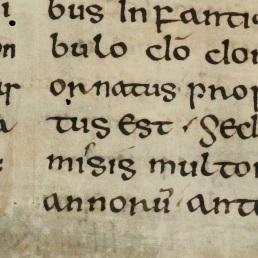 bus infanti
bulo clō clon
ornatus prop
tus est. Secl
misis multon
annorū ante